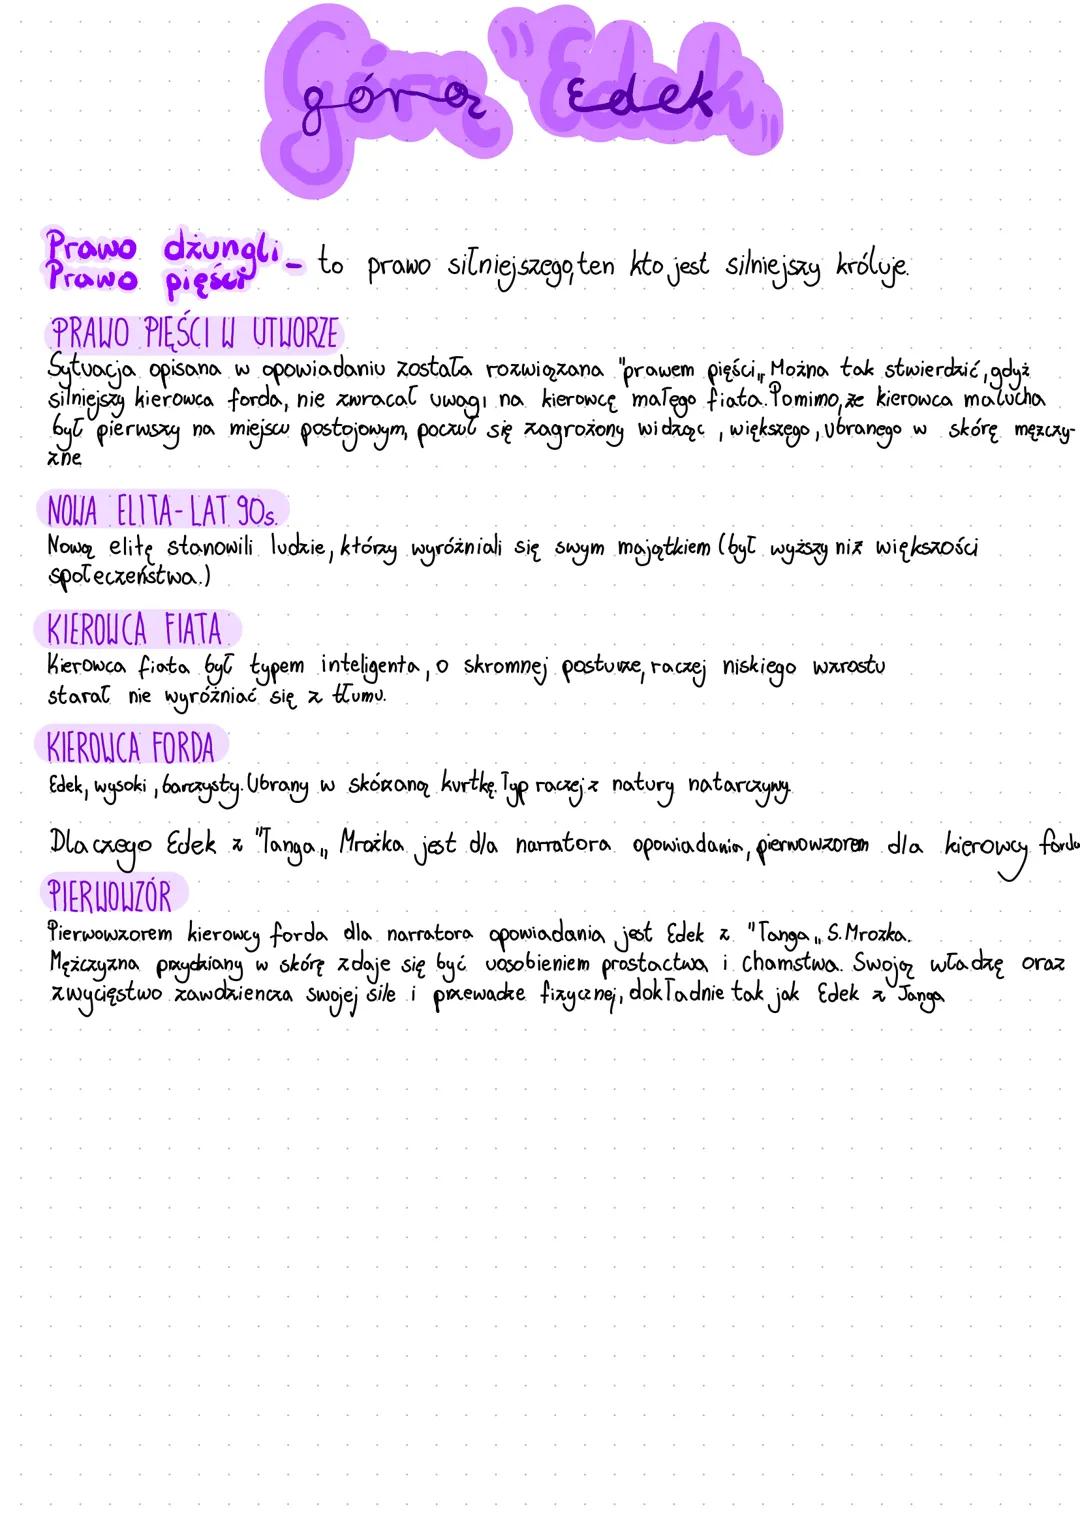 górą "Edek"
Prawo dżungli
Prawo pięści - to prawo silniejszego, ten kto jest silniejszy króluje.
PRAWO PIĘŚCI W UTWORZE
Sytuacja opisana w opowiadaniu została rozwiązana "prawem pięści„ Można tak stwierdzić, gdyż
silniejszy kierowca forda, nie zwracał uwagi na kierowcę małego fiata. Pomimo, że kierowca malucha
był pierwszy na miejscu postojowym, poczuł się zagrożony widząc , większego, ubranego w skórę mężczy-
znę
NOWA ELITA- LAT 90s.
Nową elitę stanowili ludzie, którzy wyróżniali się swym majątkiem (był wyższy niż większości
społeczeństwa.)
KIEROWCA FIATA
Kierowca fiata był typem inteligenta, o skromnej posturze, raczej niskiego wzrostu
starał nie wyróżniać się z tłumu.
KIEROWCA FORDA
Edek, wysoki, barczysty. Ubrany w skórzaną kurtkę. Typ raczej z natury natarczywy.
Dlaczego Edek z "Tanga„ Mrożka jest dla narratora opowiadania, pierwowzorem dla kierowcy forda
PIERWOWZÓR
Pierwowzorem kierowcy forda dla narratora opowiadania jest Edek z "Tanga„ S. Mrożka.
Mężczyzna przydziany w skórę zdaje się być uosobieniem prostactwa i chamstwa. Swoją władzę oraz
zwycięstwo zawdziencza swojej sile i przewadze fizycznej, dokładnie tak jak Edek z Tanga